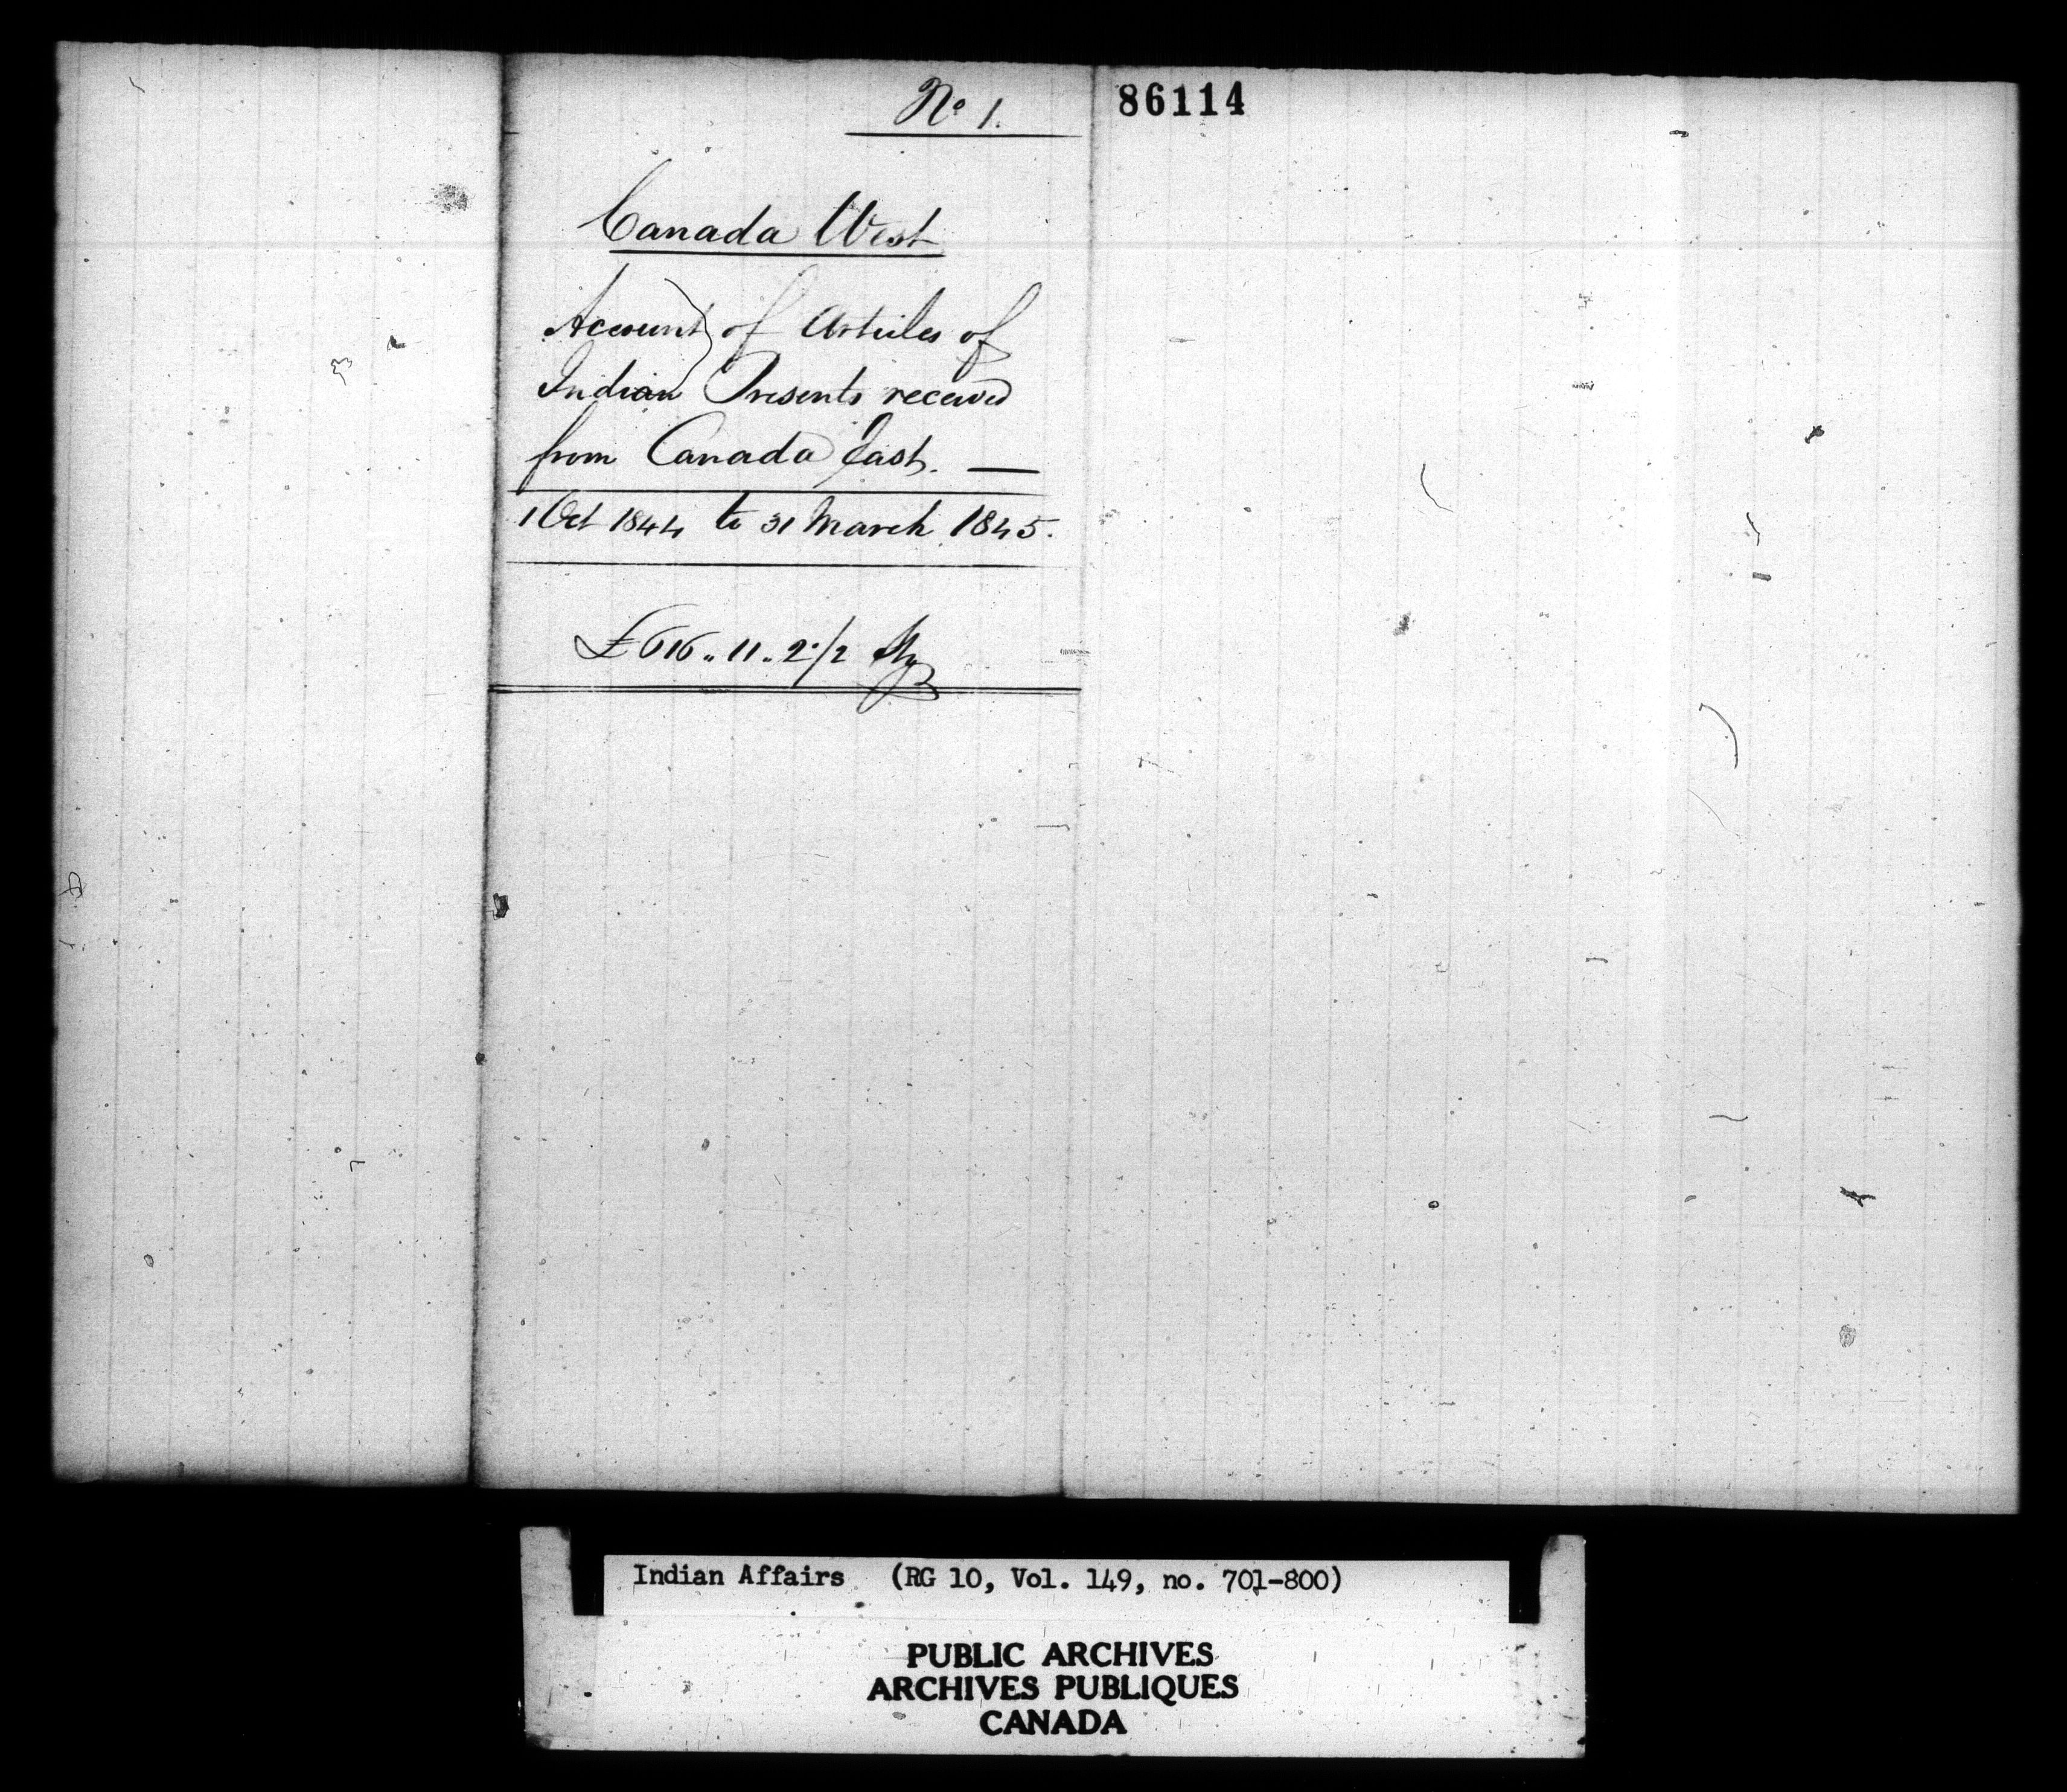 No 1.
86114
Canada West
Account of Articles of
Indian Presents received
from Canada East. —
1 Oct 1844 to 31 March 1845.
£616.. 11.. 2 1/2 Stg
Indian Affairs (RG 10, Vol. 149, no. 701-800)
PUBLIC ARCHIVES
ARCHIVES PUBLIQUES
CANADA